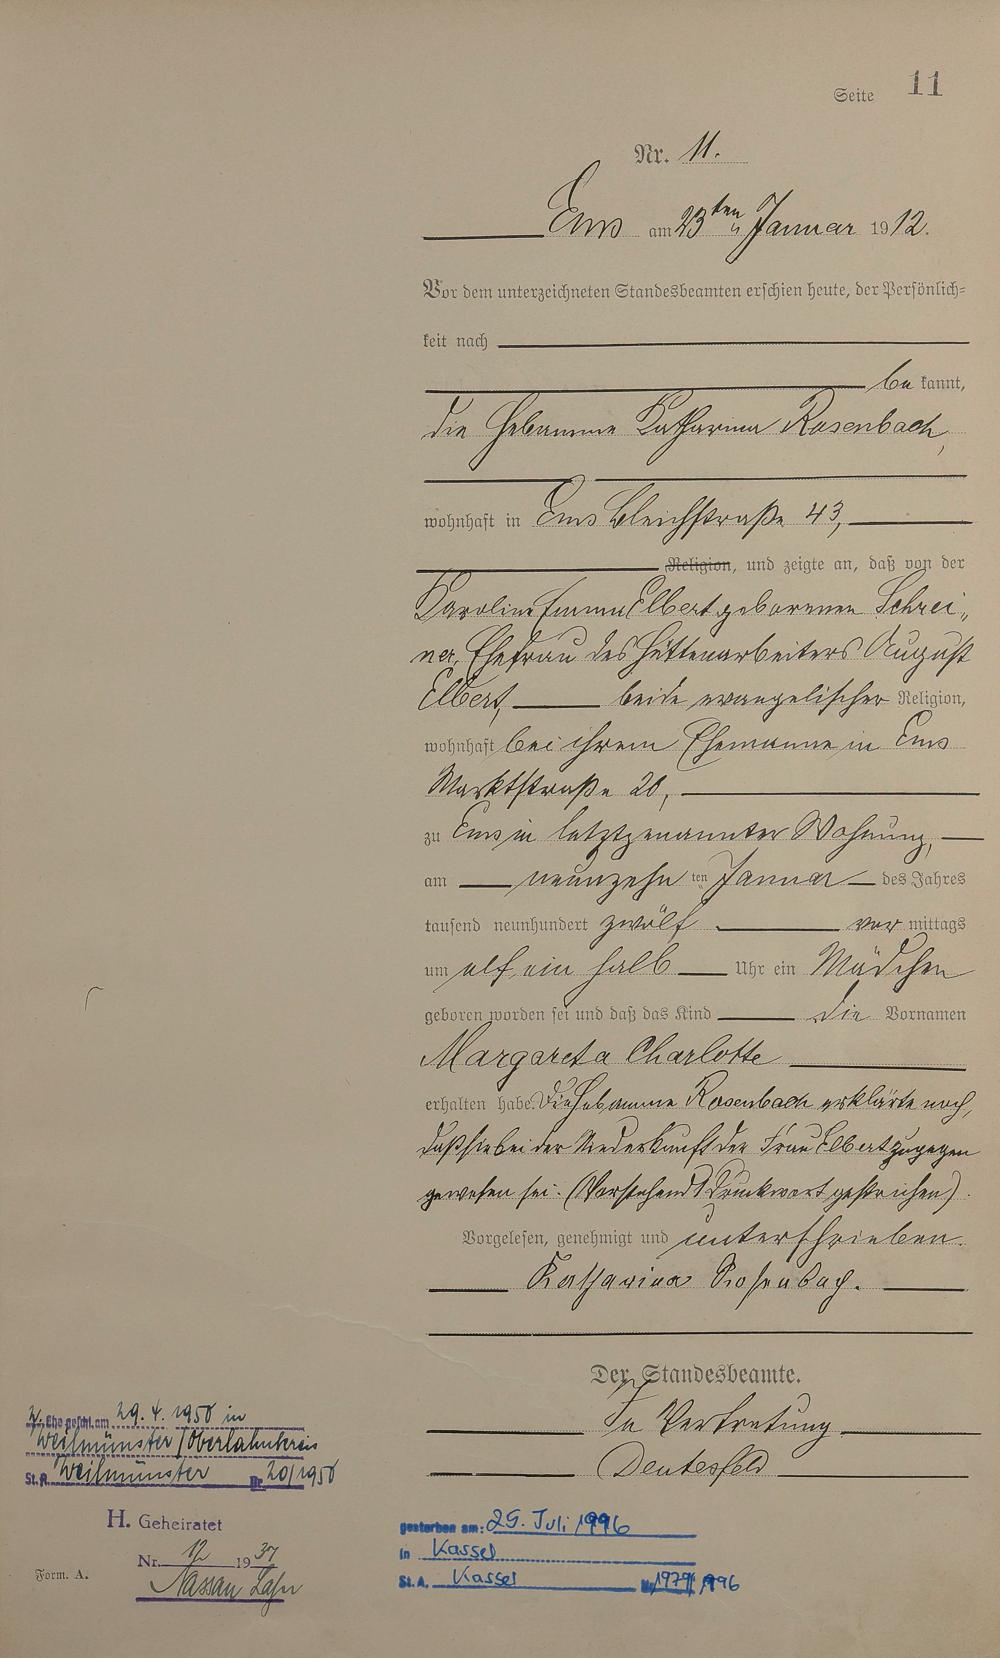 Seite 11
Nr. 11.
Ems am 23ten Januar 1912.
Vor dem unterzeichneten Standesbeamten erschien heute, der Persönlich=
keit nach
be kannt,
die Hebamme Katharina Rosenbach,
wohnhaft in Ems Bleichstraße 43,
Religion, und zeigte an, daß von der
Karoline Emma Elbert geborenen Schrei„
ner, Ehefrau des Hüttenarbeiters August
Elbert, beide evangelischer Religion,
wohnhaft bei ihrem Ehemanne in Ems
Marktstraße 20,
zu Ems in letztgenannter Wohnung,
am neunzehn ten Januar des Jahres
tausend neunhundert zwölf vor mittags
um elf ein halb Uhr ein Mädchen
geboren worden sei und daß das Kind die Vornamen
Margareta Charlotte
erhalten habe. Die Hebamme Rosenbach erklärte noch,
daß sie bei der Niederkunft der Frau Elbert zugegen
gewesen sei. (Vorstehend 1 Druckwort gestrichen).
Vorgelesen, genehmigt und unterschrieben.
Katharina Rosenbach.
Der Standesbeamte.
In Vertretung
Deutesfeld
2. Ehe geschl. am 29. 4. 1950 in
Weilmünster/Oberlahnkreis
St.A. Weilmünster Nr. 20/1950
H. Geheiratet
Nr. 12 1937
Nassau Lahn
Form. A.
gestorben am: 25. Juli 1996
in Kassel
St.A. Kassel Nr. 1979/1996